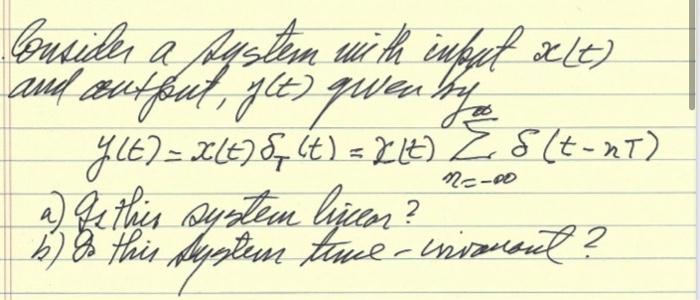 Consider a system with input x(t)
and output, y(t) given by
y(t) = x(t) δ_T(t) = x(t) ∑_{n=-∞}^{∞} δ(t-nT)
a) Is this system linear?
b) Is this system time-invariant?